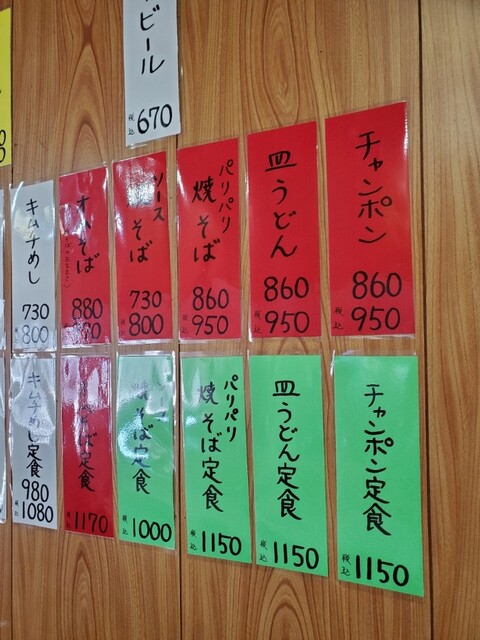 ビール
税込 670
チャンポン
860
税込 950
皿うどん
860
税込 950
パリパリ
焼そば
860
税込 950
ソース
焼そば
730
税込 800
オムそば
880
キムチめし
730
税込 800
チャンポン定食
税込 1150
皿うどん定食
税込 1150
パリパリ
焼そば定食
税込 1150
焼そば定食
税込 1000
そば定食
税込 1170
キムチめし定食
980
税込 1080